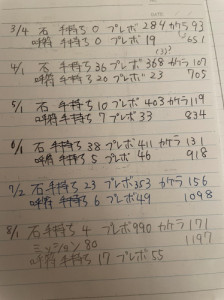 DATE
3/4 石 手持ち 0 プレボ 284 カケラ 93
呼符 手持ち 0 プレボ 19 651
(33)
4/1 石 手持ち 36 プレボ 368 カケラ 107
呼符 手持ち 20 プレボ 23 705
5/1 石 手持ち 10 プレボ 403 カケラ 119
呼符 手持ち 7 プレボ 33 834
6/1 石 手持ち 38 プレボ 411 カケラ 131
呼符 手持ち 5 プレボ 46 918
7/2 石 手持ち 23 プレボ 353 カケラ 156
呼符 手持ち 6 プレボ 49 1098
8/1 石 手持ち 4 プレボ 990 カケラ 171
ミッション 80 1197
呼符 手持ち 17 プレボ 55